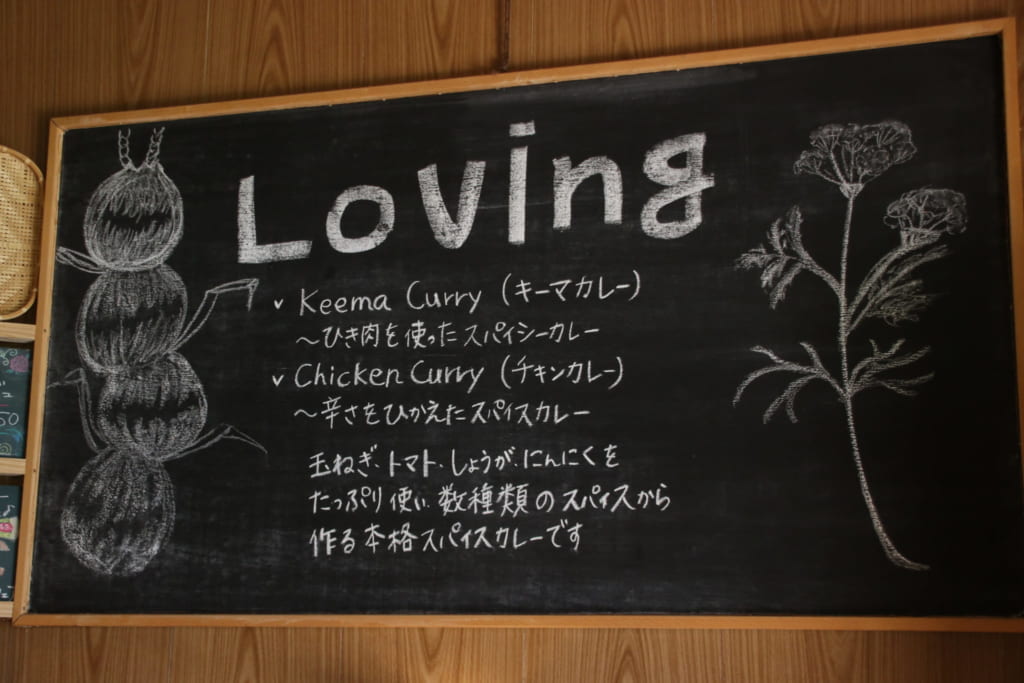 Loving
✓ Keema Curry (キーマカレー)
〜ひき肉を使ったスパイシーカレー
✓ Chicken Curry (チキンカレー)
〜辛さをひかえたスパイスカレー
玉ねぎ、トマト、しょうが、にんにくを
たっぷり使い、数種類のスパイスから
作る本格スパイスカレーです
50